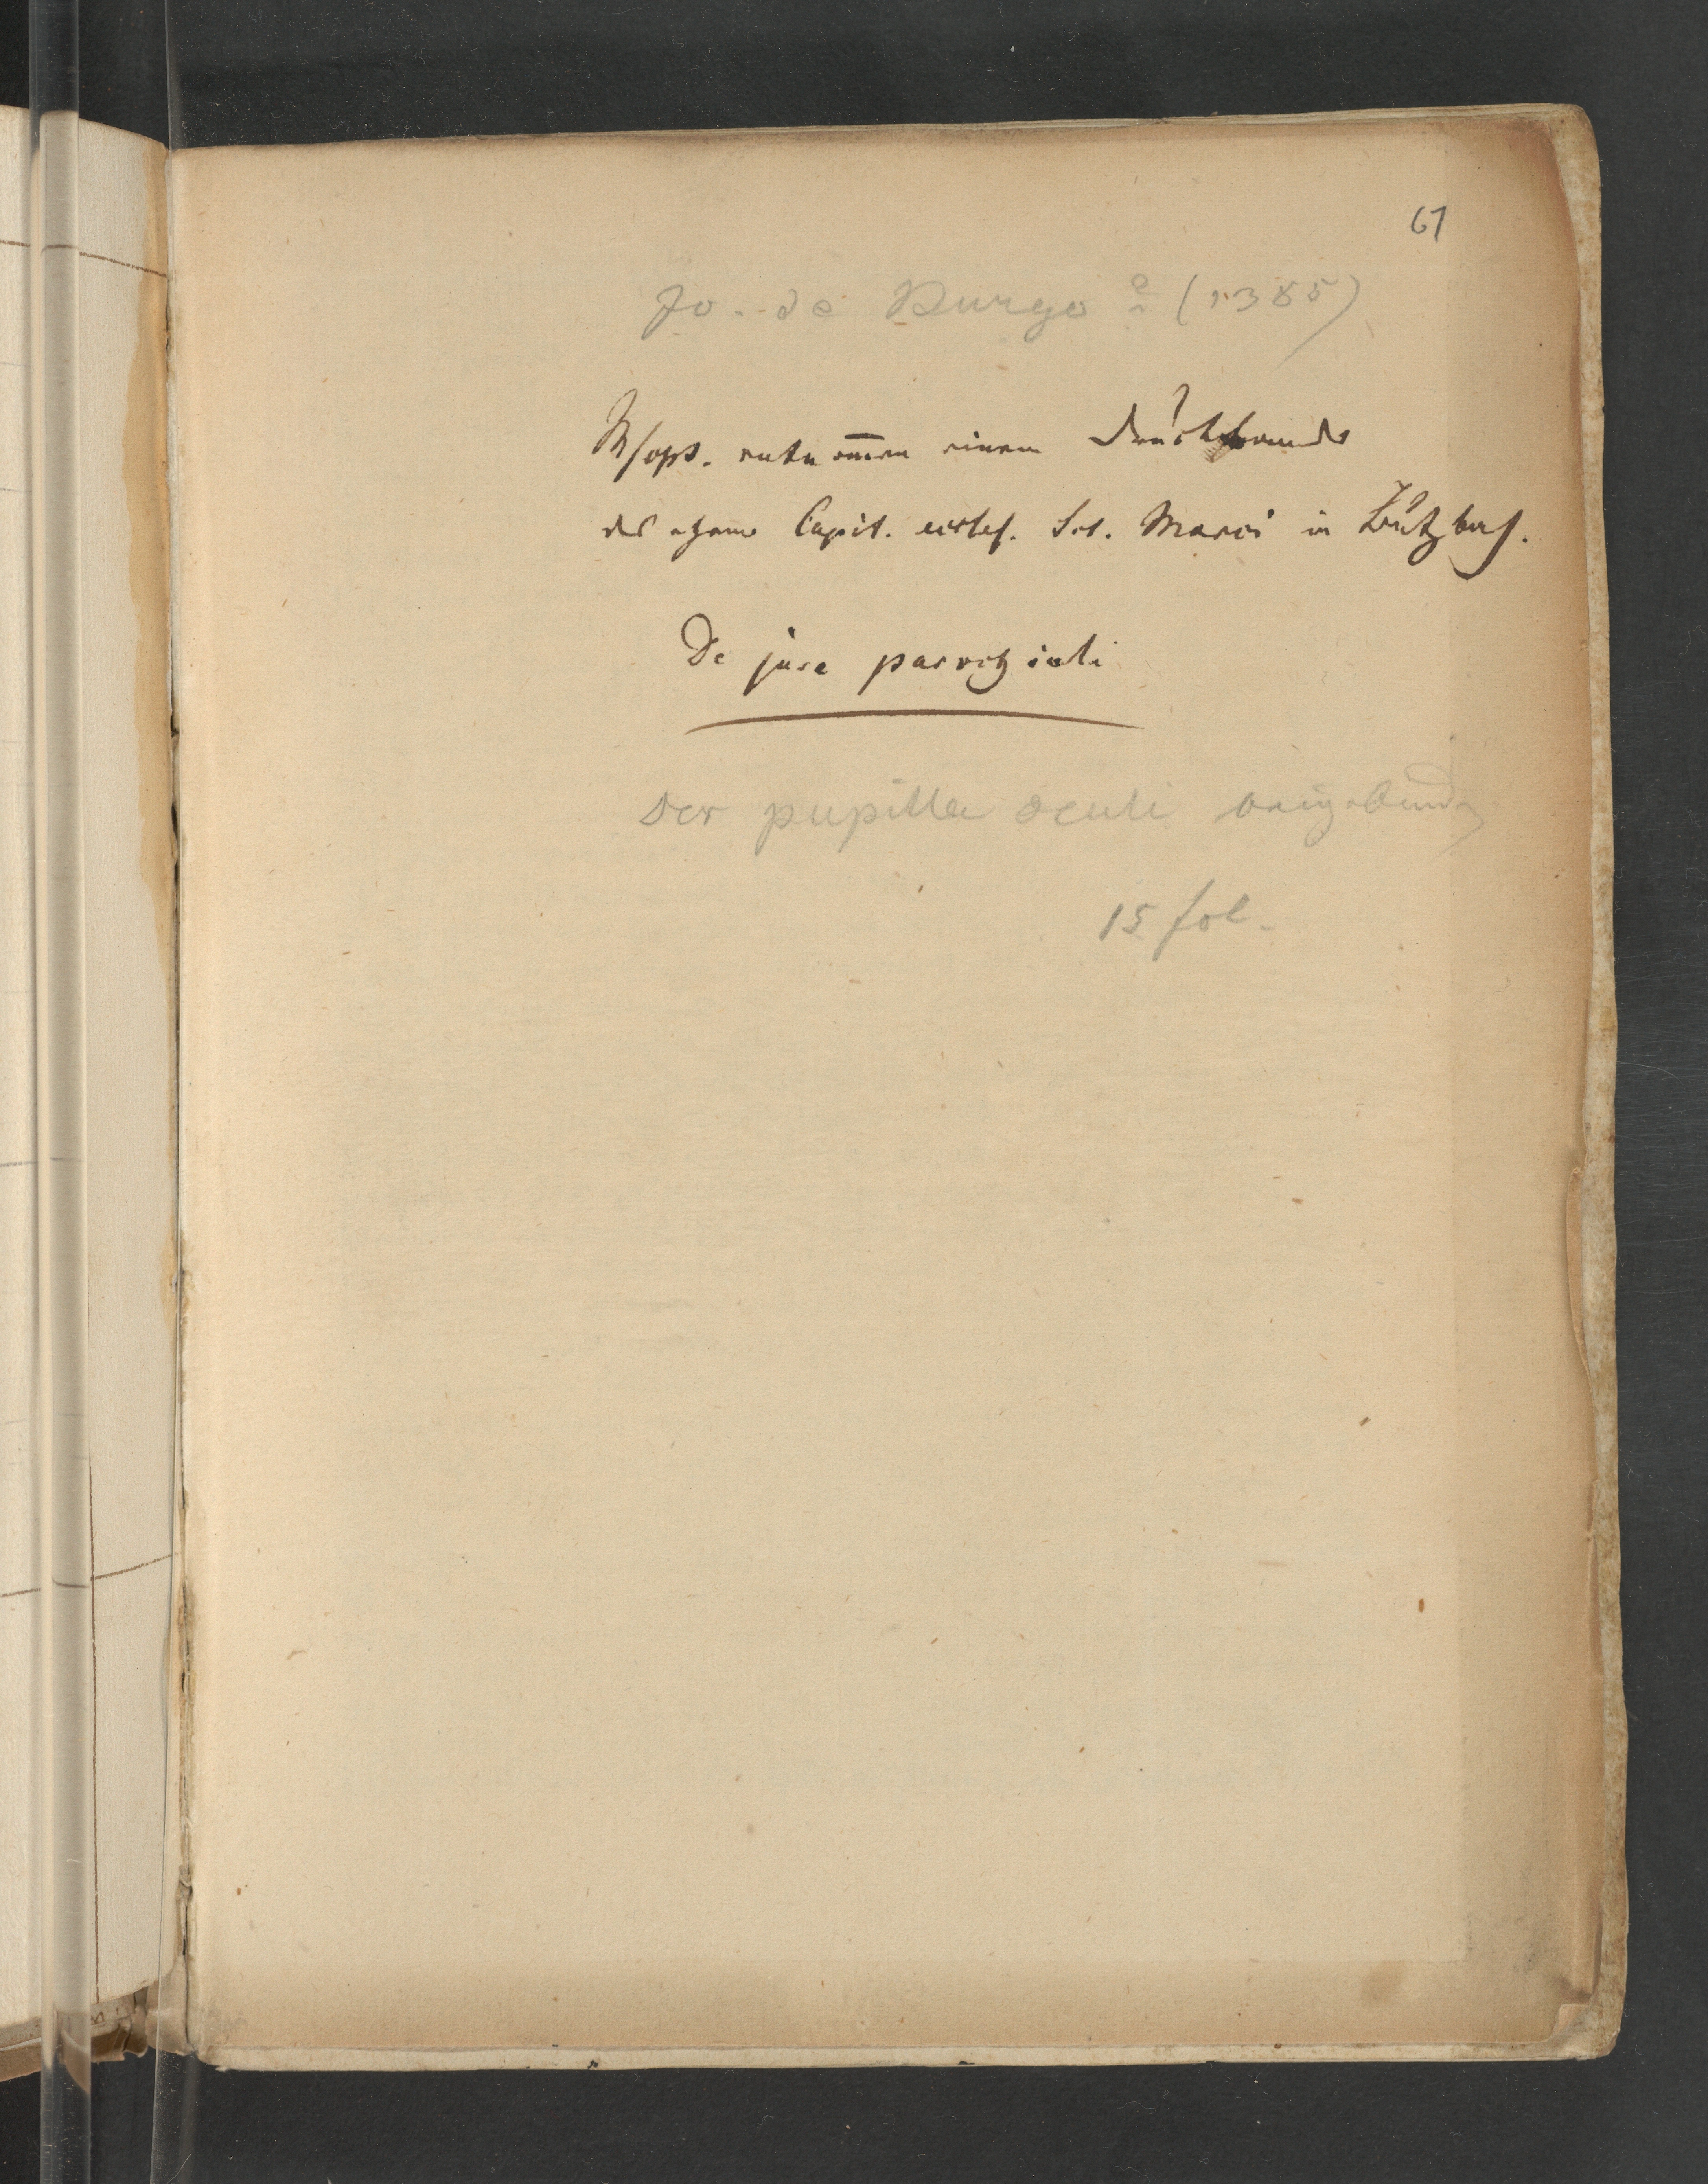 61
Jo. de Burgo ? (1385)
Mscpt. entnom̅en einem Druckbande
des ehem Capit. eccles. Sct. Marci in Butzbach.
De jure parochiali
Der pupilla oculi beigebunden
15 fol.